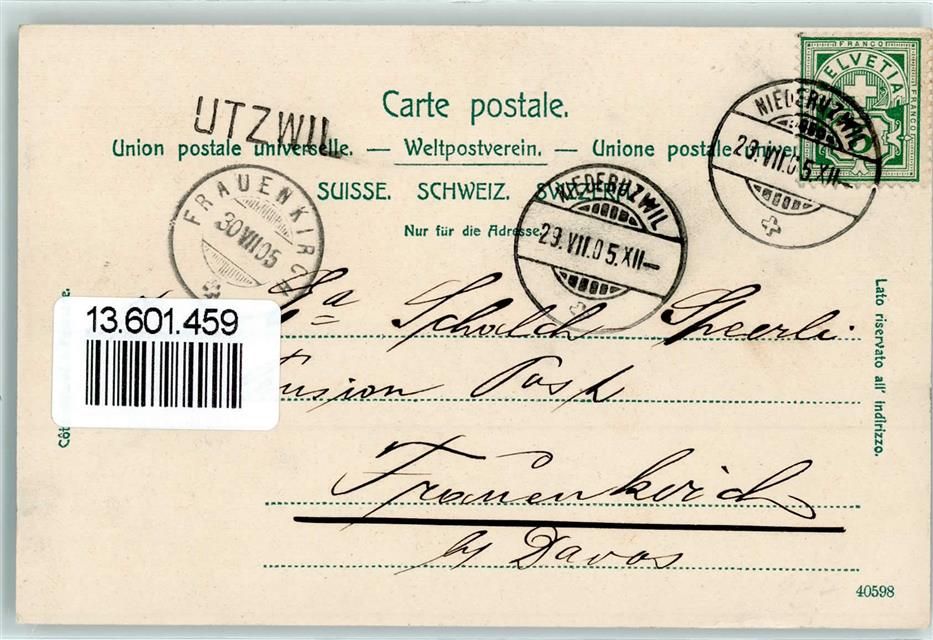 FRANCO
HELVETIA
FRANCO
UTZWIL
Carte postale.
Union postale universelle. — Weltpostverein. — Unione postale univer
SUISSE. SCHWEIZ. SVIZZERA.
Nur für die Adresse.
NIEDERUZWIL
29.VII.05.XII—
NIEDERUZWIL
29.VII.05.XII—
FRAUENKIRCH
30 VII 05
13.601.459
Schalch Speerli
Post
Frauenkirch
by Davos
Lato riservato all' indirizzo.
Côt
40598